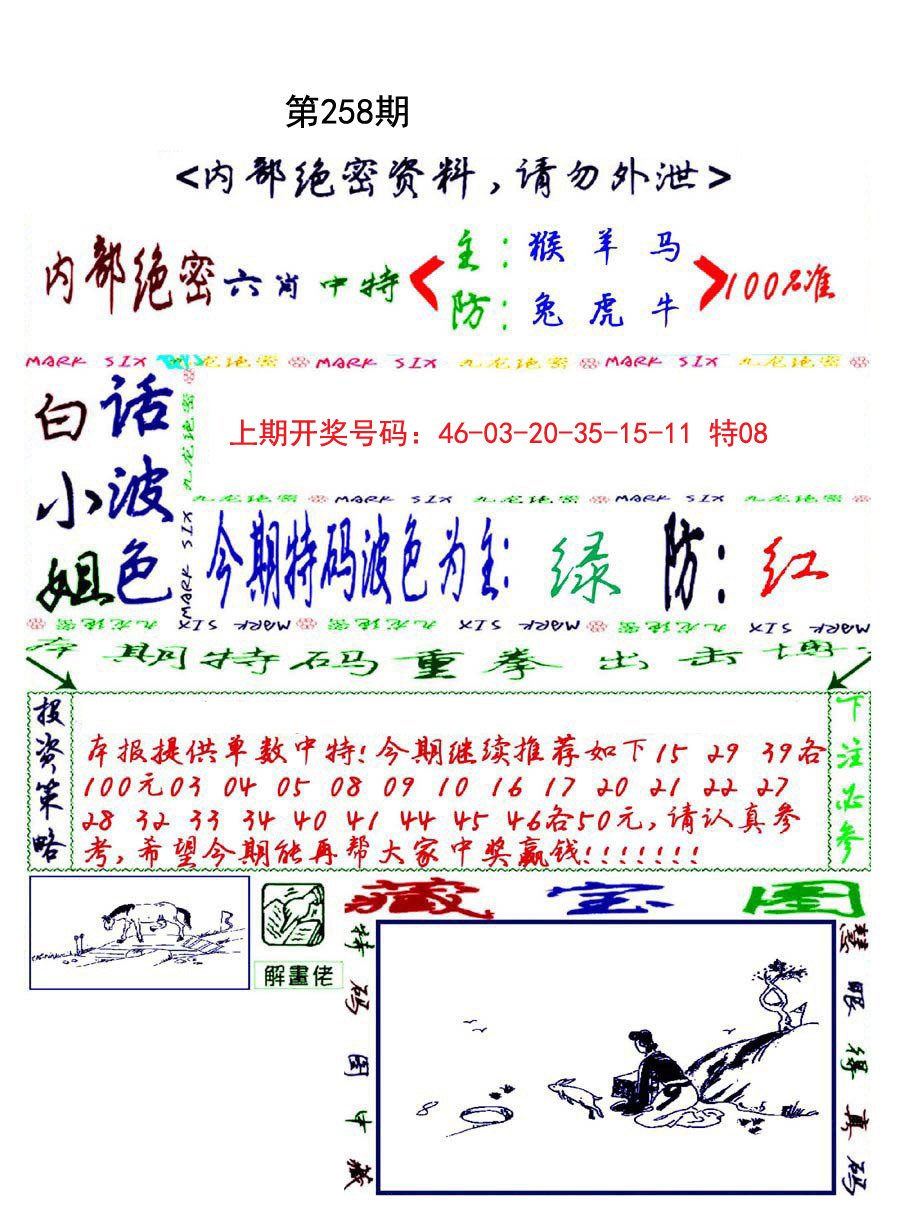 第258期
<内部绝密资料,请勿外泄>
内部绝密六肖中特
主:猴羊马
防:兔虎牛
100%准
MARK SIX 九龙绝密 MARK SIX 九龙绝密 MARK SIX 九龙绝密
白话
小波
姐色
九龙绝密
MARK SIX
上期开奖号码：46-03-20-35-15-11 特08
九龙绝密 MARK SIX 九龙绝密 MARK SIX 九龙绝密
今期特码波色为主:绿 防:红
九龙绝密 MARK SIX 九龙绝密 MARK SIX 九龙绝密 MARK SIX
本期特码重拳出击博
投资策略
本报提供单数中特!今期继续推荐如下15 29 39各
100元03 04 05 08 09 10 16 17 20 21 22 27
28 32 33 34 40 41 44 45 46各50元,请认真参
考,希望今期能再帮大家中奖赢钱!!!!!!!
下注必参
解畫佬
藏宝图
特码图中藏
慧眼得真码